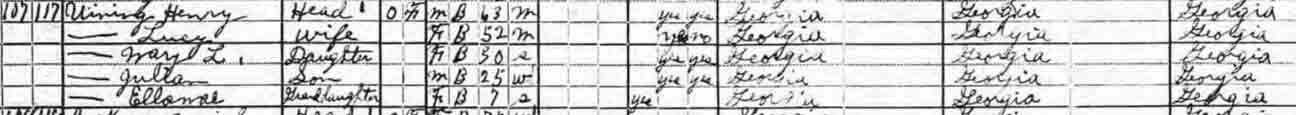 107 117 Vining Henry Head 1 O F M B 63 M yes yes Georgia Georgia Georgia
— Lucy Wife F B 52 M yes no Georgia Georgia Georgia
— Mary L. Daughter F B 30 S yes yes Georgia Georgia Georgia
— Julian Son M B 25 W yes yes Georgia Georgia Georgia
— Ellamae Granddaughter F B 7 S yes Georgia Georgia Georgia